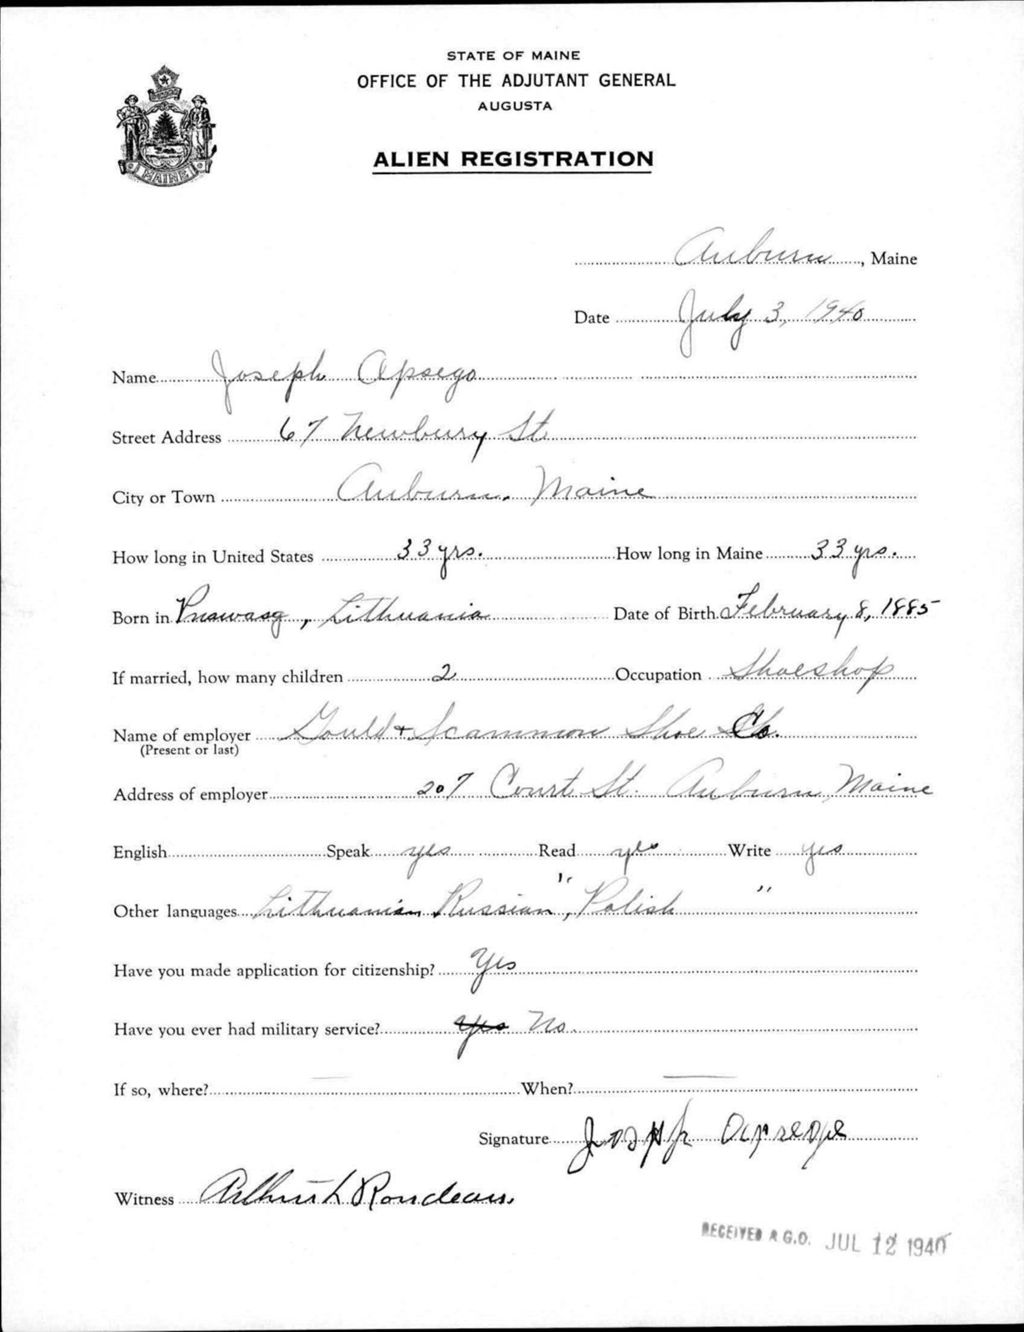 STATE OF MAINE
OFFICE OF THE ADJUTANT GENERAL
AUGUSTA
ALIEN REGISTRATION
MAINE
Auburn, Maine
Date July 3, 1940
Name Joseph Apsega
Street Address 67 Newbury St.
City or Town Auburn, Maine
How long in United States 33 yrs. How long in Maine 33 yrs.
Born in , Lithuania Date of Birth February 8, 1885
If married, how many children 2 Occupation Shoeshop
Name of employer Gould & Scammon Shoe Co.
(Present or last)
Address of employer 207 Court St. Auburn, Maine
English Speak yes Read yes Write yes
Other languages Lithuanian Russian", Polish "
Have you made application for citizenship? Yes
Have you ever had military service? Yes No.
If so, where? — When? —
Signature
Witness Arthur L Rondeau
RECEIVED A.G.O. JUL 12 1940